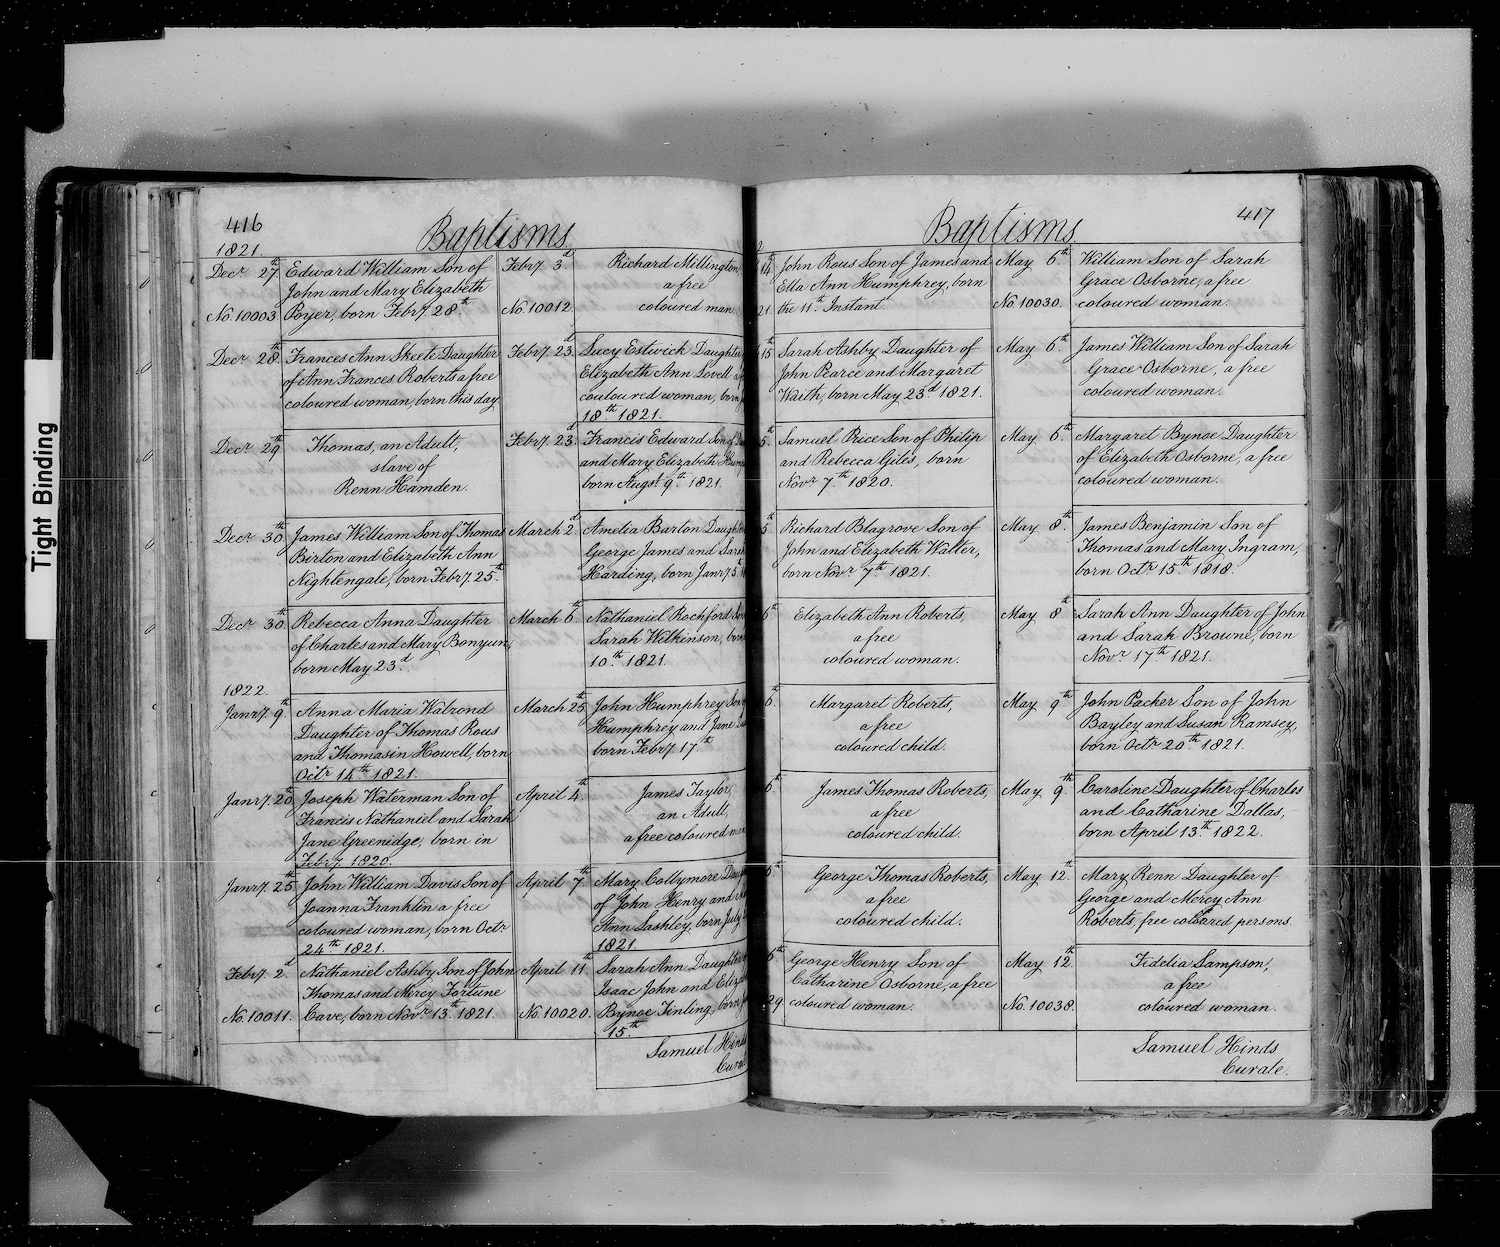 Tight Binding
416
Baptisms
1821.
Decr. 27th
No. 10003
Edward William Son of
John and Mary Elizabeth
Poyer, born Febry. 28th
Decr. 28th
Frances Ann Skeete Daughter
of Ann Frances Roberts a free
coloured woman, born this day
Decr. 29th
Thomas, an Adult,
slave of
Renn Hamden.
Decr. 30th
James William Son of Thomas
Birton and Elizabeth Ann
Nightengale, born Febry. 25th
Decr. 30th
Rebecca Anna Daughter
of Charles and Mary Bonyun,
born May 23d.
1822.
Janry. 9th
Anna Maria Walrond
Daughter of Thomas Rous
and Thomasin Howell, born
Octr. 14th 1821.
Janry. 20th
Joseph Waterman Son of
Francis Nathaniel and Sarah
Jane Greenidge, born in
Febry. 1820.
Janry. 25th
John William Davis Son of
Joanna Franklin a free
coloured woman, born Octr.
24th 1821.
Febry. 2d
No. 10011.
Nathaniel Ashby Son of John
Thomas and Mercy Fortune
Cave, born Novr. 13th 1821.
Febry. 3d
No. 10012.
Richard Millington,
a free
coloured man.
Febry. 23d
Lucy Estwick Daughter
Elizabeth Ann Lovell
couloured woman, born
18th 1821.
Febry. 23d
Francis Edward Son of
and Mary Elizabeth
born Augst. 9th 1821.
March 2d
Amelia Barton
George James and Sarah
Harding, born Janry. 5th
March 6th
Nathaniel Rochford
Sarah Wilkinson, born
10th 1821.
March 25th
John Humphrey Son
Humphrey and Jane
born Febry. 17th
April 4th
James Taylor,
an Adult,
a free coloured man
April 7th
Mary Collymore
of John Henry and
Ann Lashley, born July
1821.
April 11th
No. 10020.
Sarah Ann Daughter
Isaac John and
Bynoe Tinling, born
15th
Samuel Hinds
Curate
417
Baptisms
14th
21.
John Rous Son of James and
Ella Ann Humphrey, born
the 11th Instant.
15th
Sarah Ashby Daughter of
John Pearce and Margaret
Waith, born May 23d 1821.
5th
Samuel Price Son of Philip
and Rebecca Giles, born
Novr. 7th 1820.
5th
Richard Blagrove Son of
John and Elizabeth Walter,
born Novr. 7th 1821.
6th
Elizabeth Ann Roberts,
a free
coloured woman.
6th
Margaret Roberts,
a free
coloured child.
6th
James Thomas Roberts,
a free
coloured child.
6th
George Thomas Roberts,
a free
coloured child.
6th
29
George Henry Son of
Catharine Osborne, a free
coloured woman.
May 6th
No. 10030.
William Son of Sarah
Grace Osborne, a free
coloured woman.
May 6th
James William Son of Sarah
Grace Osborne, a free
coloured woman.
May 6th
Margaret Bynoe Daughter
of Elizabeth Osborne, a free
coloured woman.
May 8th
James Benjamin Son of
Thomas and Mary Ingram,
born Octr. 15th 1818.
May 8th
Sarah Ann Daughter of John
and Sarah Browne, born
Novr. 17th 1821.
May 9th
John Packer Son of John
Bayley and Susan Ramsey,
born Octr. 20th 1821.
May 9th
Caroline Daughter of Charles
and Catharine Dallas,
born April 13th 1822.
May 12th
Mary Renn Daughter of
George and Mercy Ann
Roberts, free colored persons.
May 12th
No. 10038.
Fidelia Sampson,
a free
coloured woman.
Samuel Hinds
Curate.